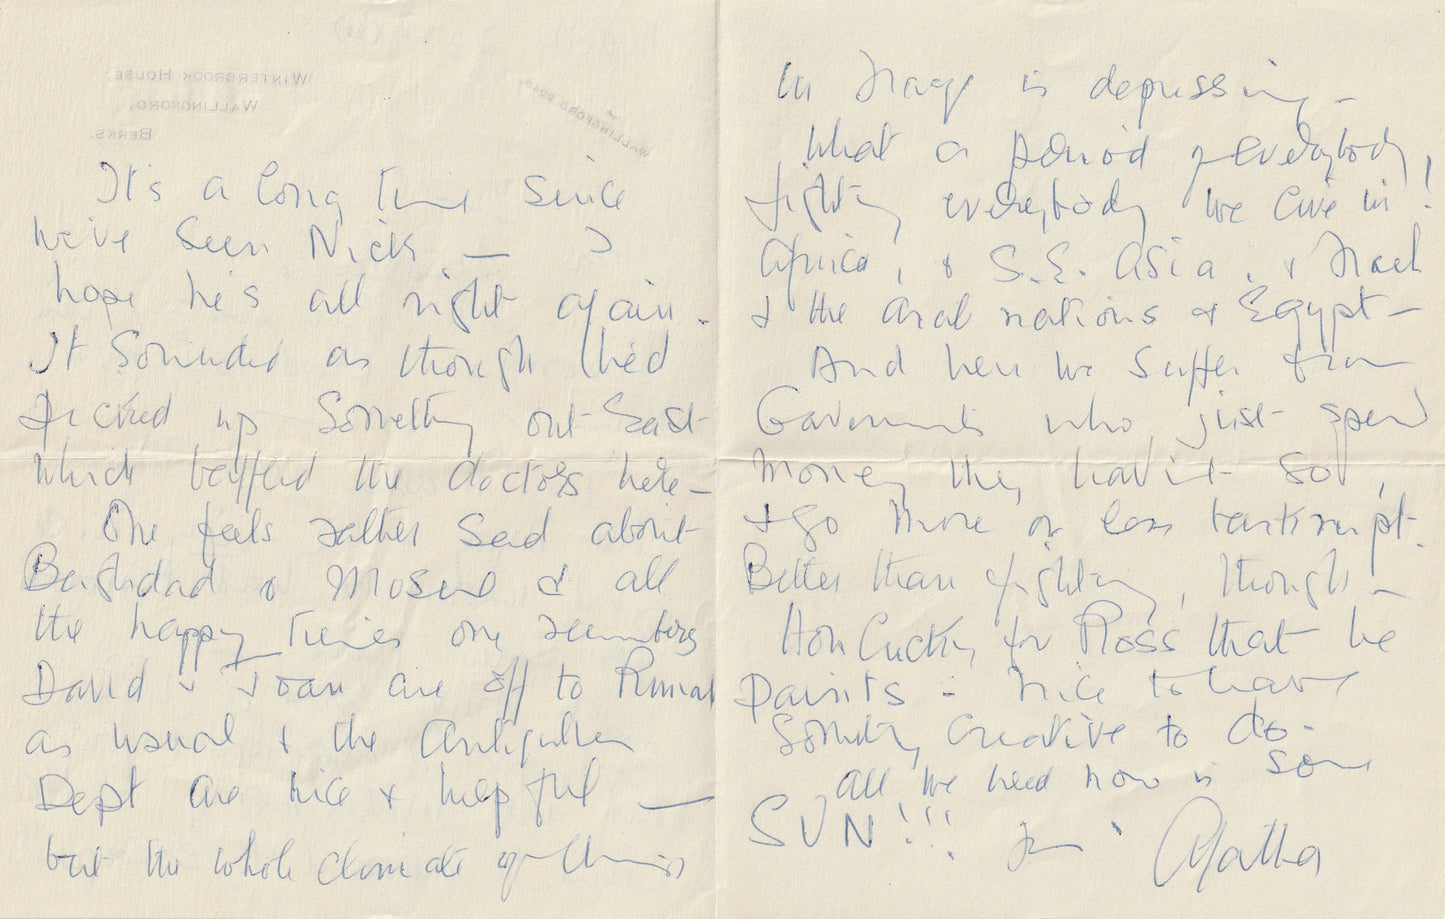 WINTERBROOK HOUSE,
WALLINGFORD,
BERKS.
WALLINGFORD 2248
It's a long time since
we've seen Nick — I
hope he's all right again.
It sounded as though he'd
picked up something out East
which baffled the doctors here —
One feels rather sad about
Baghdad & Mosul & all
the happy times one remembers
David & Joan are off to Rimah
as usual & the Antiquities
Dept are nice & helpful —
but the whole climate of things
in Iraq is depressing —
What a period of everybody
fighting everybody we live in!
Africa, & S.E. Asia, & Israel
& the Arab nations & Egypt —
And here we suffer from
Governments who just spend
money they haven't got,
& go more or less bankrupt.
Better than fighting, though —
How lucky for Ross that he
paints — nice to have
something creative to do.
All we need now is some
SUN!!! Agatha